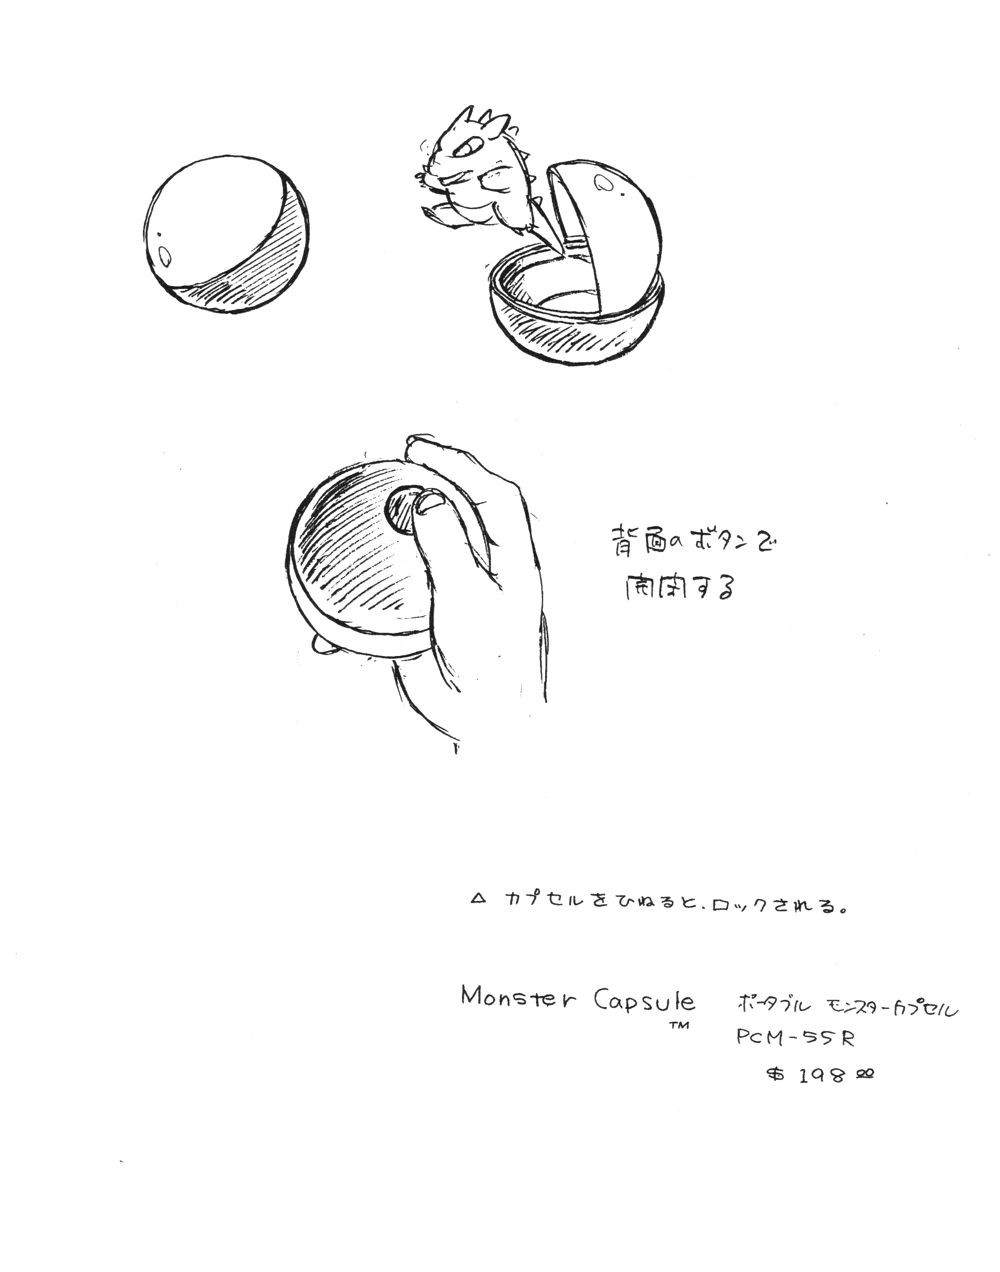 背面のボタンで
開閉する
△ カプセルをひねると、ロックされる。
Monster Capsule
TM
ポータブル モンスターカプセル
PCM-55R
$ 198.00